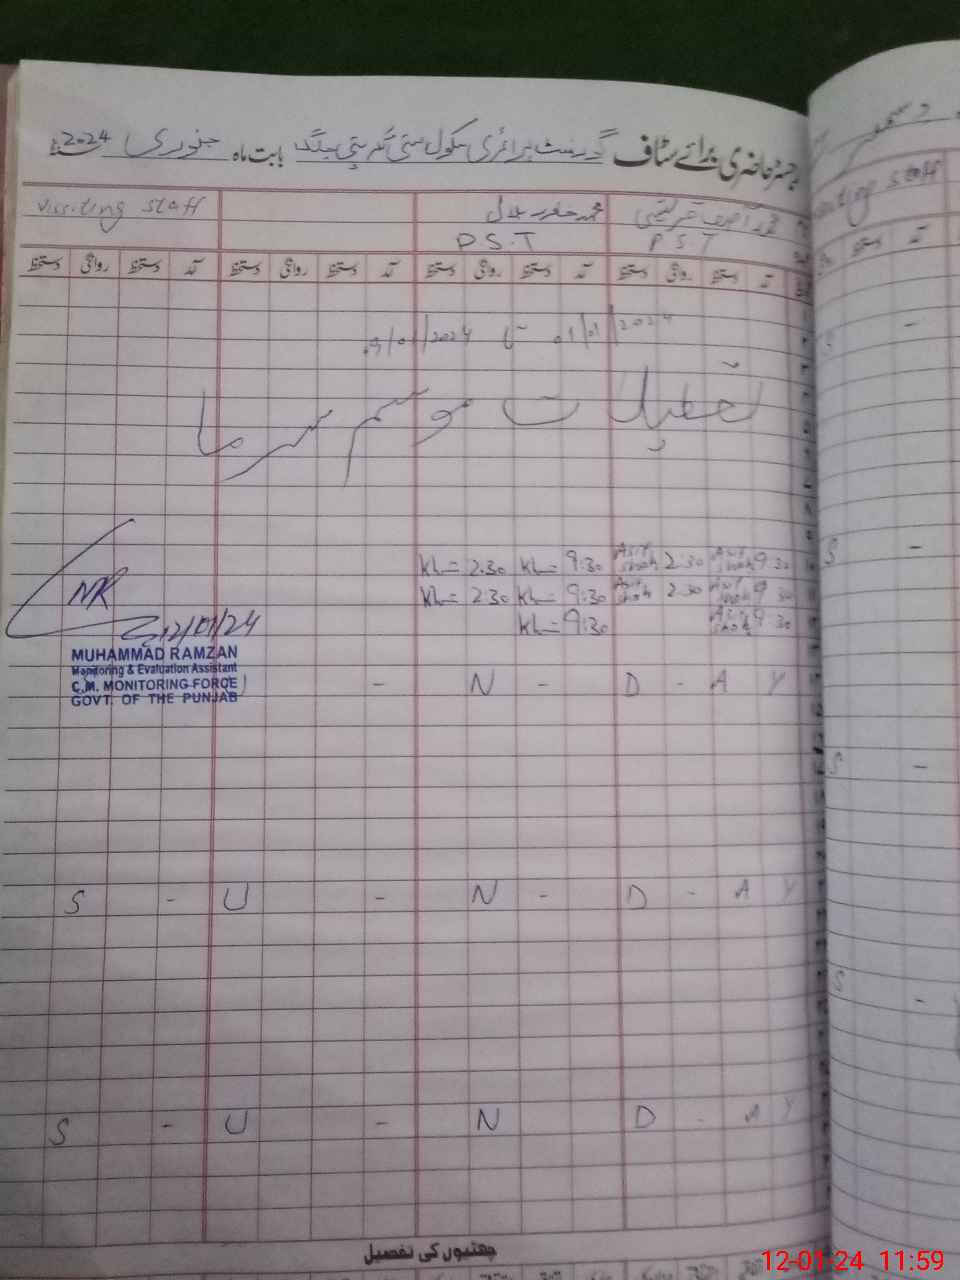 رجسٹر حاضری برائے سٹاف گورنمنٹ پرائمری سکول بابت ماہ جنوری 2024
محمد Vissiting staff
P.S.T P.S.T
آمد دستخط روانگی دستخط آمد دستخط روانگی دستخط آمد دستخط روانگی دستخط آمد دستخط روانگی دستخط
01/01/2024 تا 09/01/2024
تعطیلات موسم سرما
9:30 Asif shah 2:30 Asif shah 9:30 Kh= 2:30 Kh=
9:30 Asif shah 2:30 Asif shah 9:30 Kh= 2:30 Kh=
9:30 Asif shah 9:30 Kh=
NR
12/01/24
MUHAMMAD RAMZAN
Monitoring & Evaluation Assistant
C.M. MONITORING FORCE
GOVT. OF THE PUNJAB
- N - D - A Y
S - U - N - D - A Y
S - U - N D - A Y
چھٹیوں کی تفصیل
visiting staff
دستخط آمد
S -
S -
S -
S -
12-01-24 11:59